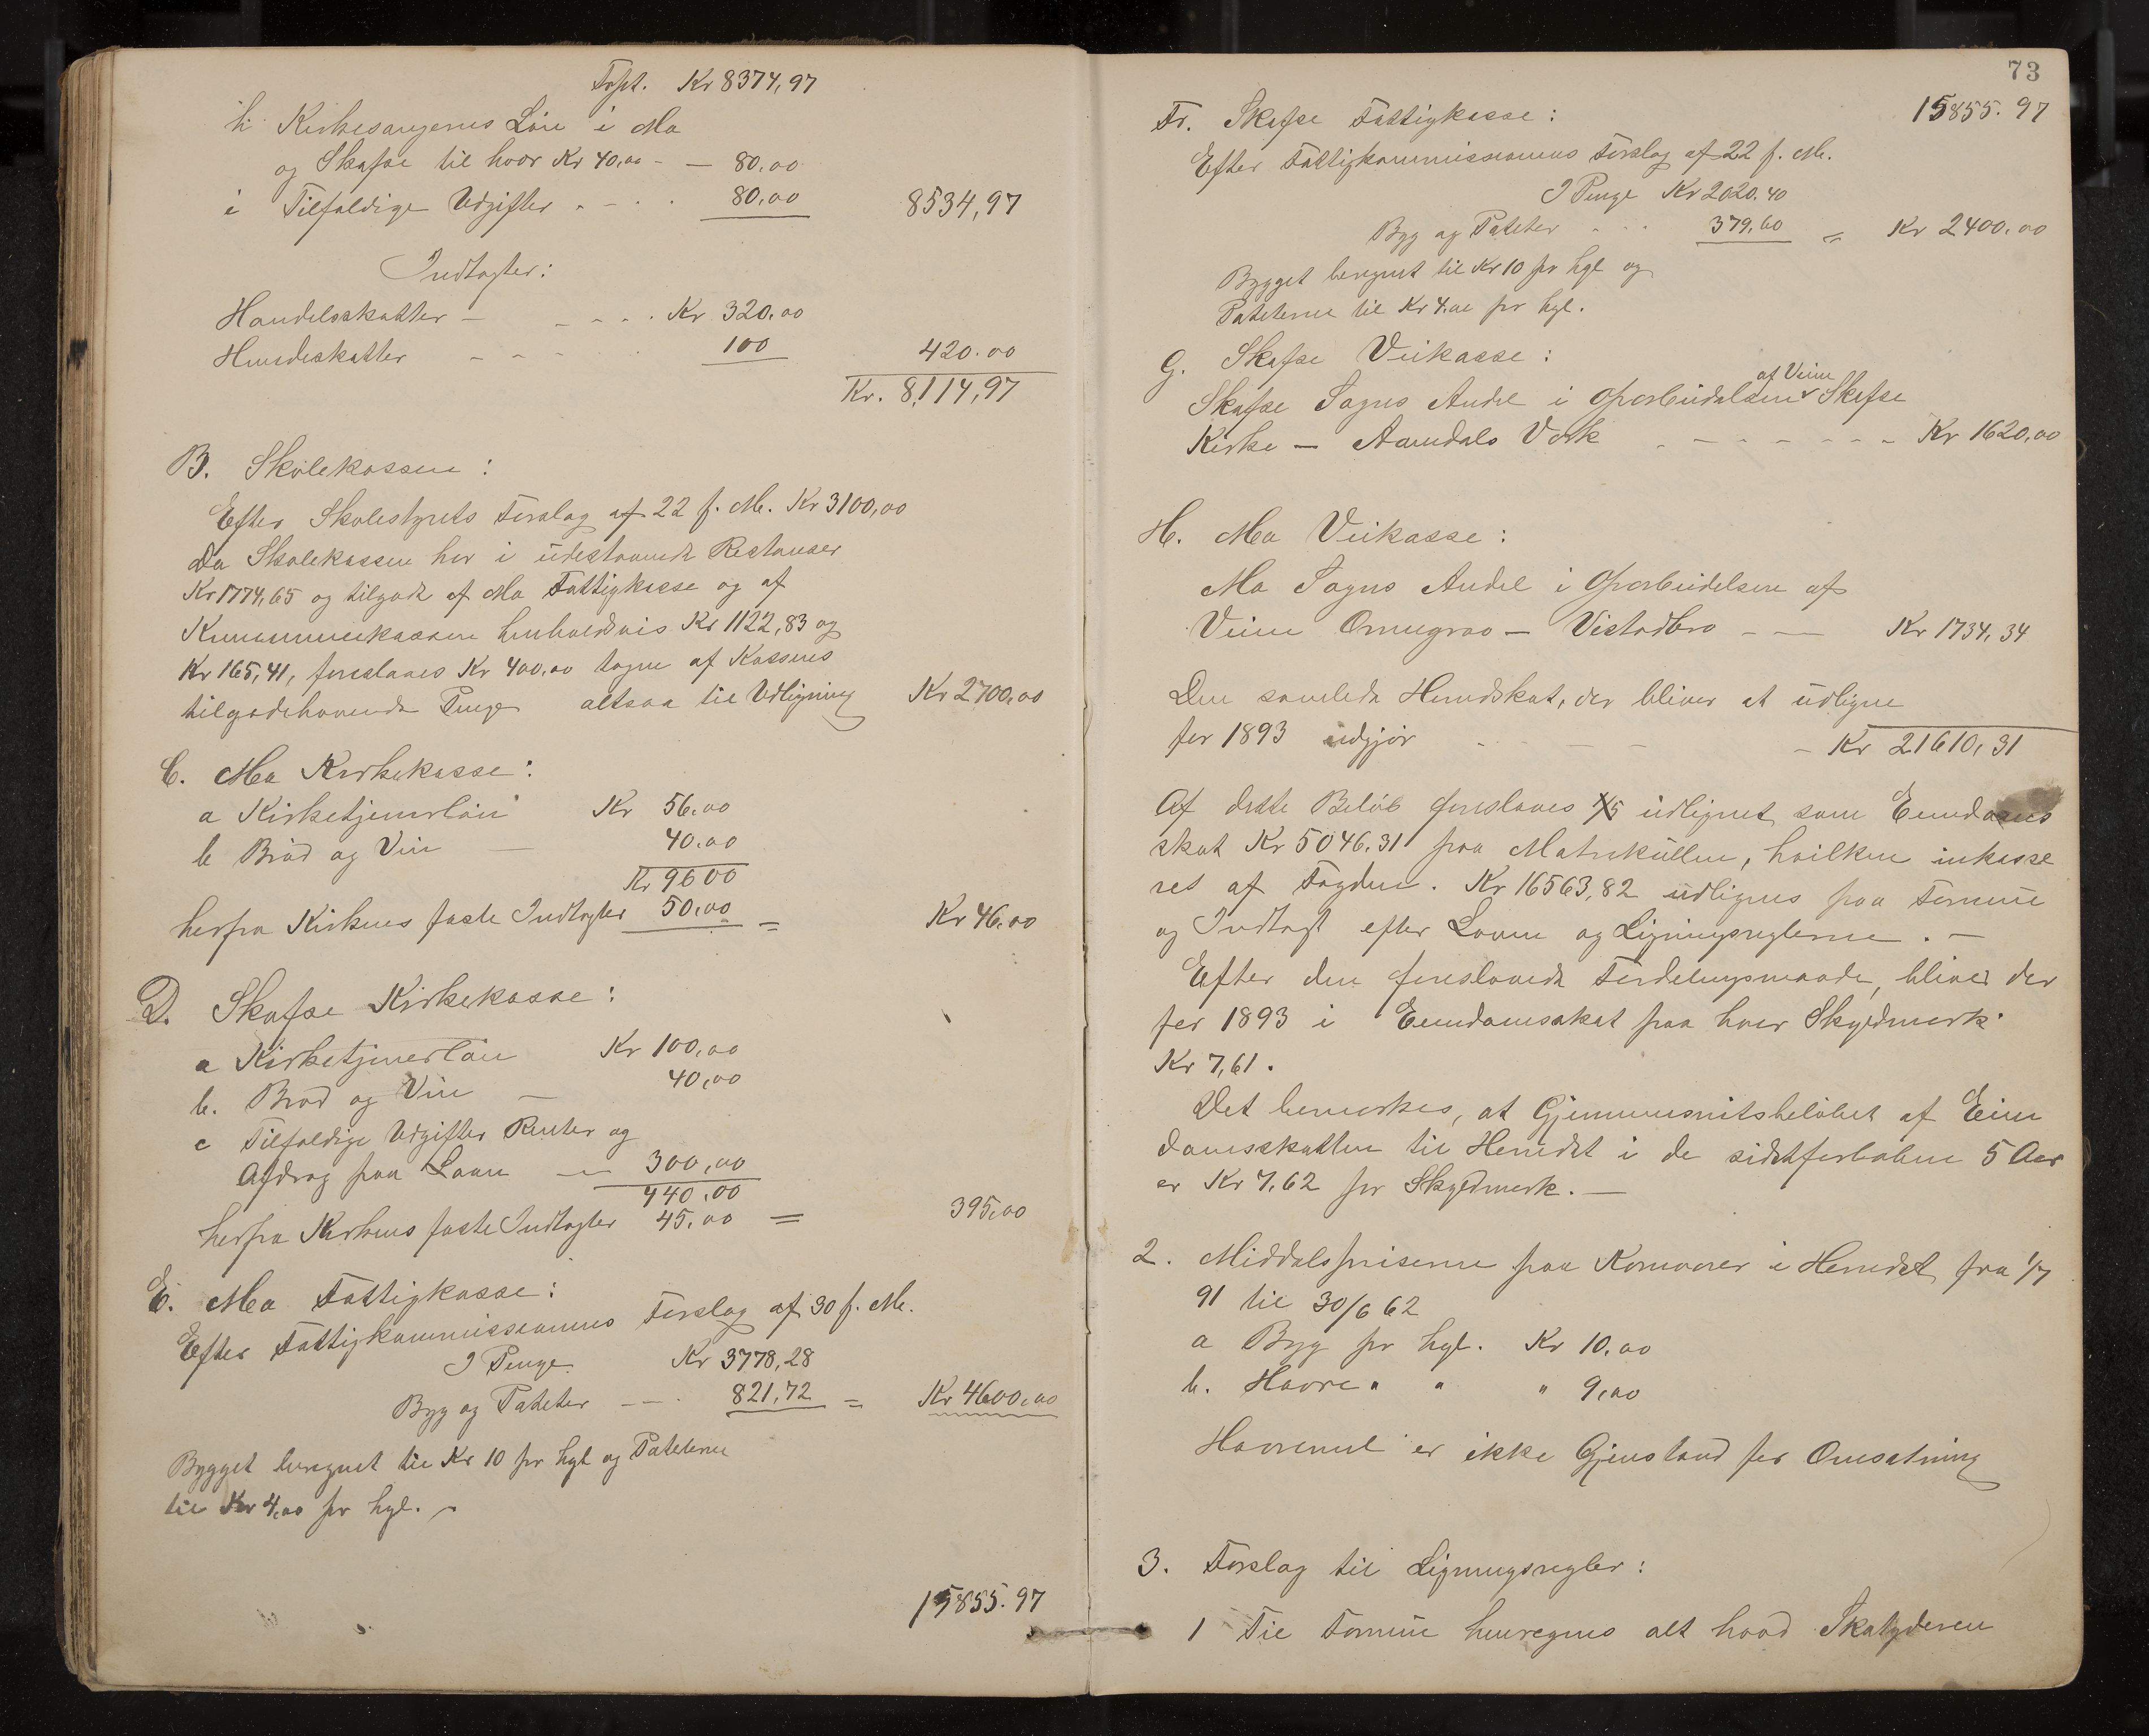 Trpt. Kr 8374,97
h Kirkesangernes Løn i Mo
og Skafse til hver Kr 40,00 - - 80,00
i Tilfældige Udgifter - - . . 80,00 8534,97
Indtægter:
Handelsskatter - - - - . Kr 320.00
Hundeskatter - - - . 100 420.00
Kr. 8,114,97
B. Skolekassen :
Efter Skolestyrets Forslag af 22 f. M. Kr 3100,00
Da Skolekassen har i udestaaende Restanser
Kr 1774,65 og tilgode af Mo Fattigkasse og af
Kommunekassen henholdsvis Kr 1122,83 og
Kr 165,41, foreslaaes Kr 400,00 tagne af Kassens
tilgodehavende Penge altsaa til Udligning Kr 2700,00
C. Mo Kirkekasse :
a Kirketjenerløn Kr 56.00
b Brød og Vin — 40.00
Kr 96 00
herfra Kirkens faste Indtægter 50,00 = Kr 46.00
D. Skafse Kirkekasse :
a Kirketjenerløn Kr 100,00
b. Brød og Vin — 40,00
c Tilfældige Udgifter Renter og
Afdrag paa Laan — 300,00
440,00
herfra Kirkens faste Indtægter 45,00 = 395,00
E. Mo Fattigkasse :
Efter Fattigkommissionens Forslag af 30 f. M.
I Penge Kr 3778,28
Byg og Poteter — - . 821,72 = Kr 4600,00
Bygget beregnet til Kr 10 pr hgl og Poteterne
til Kr 4,00 pr hgl. -
15855.97
73
Fr. Skafse Fattigkasse : 15855.97
Efter Fattigkommissionens Forslag af 22 f. M.
I Penge Kr 2020.40
Byg og Poteter - . . 379,60 = Kr 2400.00
Bygget beregnet til Kr 10 pr hgl og
Poteterne til Kr 4.00 pr hgl.
G. Skafse Veikasse :
af Veien
Skafse Sogns Andel i Oparbeidelsen v Skafse
Kirke — Aamdals Værk - - - - - - - Kr 1620,00
H. Mo Veikasse :
Mo Sogns Andel i Oparbeidelsen af
Veien Ormegrav — Vistadbro - — Kr 1734,34
Den samlede Herredskat, der bliver at udligne
for 1893 udgjør - - - - - Kr 21610,31
Af dette Beløb foreslaaes 1/5 udlignet som Eiendoms
skat Kr 5046.31 paa Matrikullen, hvilken inkasse
res af Fogden. Kr 16563,82 udlignes paa Formue
og Indtægt efter Loven og Ligningsreglerne . —
Efter den foreslaaede Fordelingsmaade, bliver der
for 1893 i Eiendomsskat paa hver Skyldmark
Kr 7,61 .
Det bemerkes, at Gjennemsnitsbeløbet af Eien
domsskatten til Herredet i de sidstforløbne 5 Aar
er Kr 7,62 pr Skyldmark. —
2. Middelspriserne paa Kornvarer i Herredet fra 1/7
91 til 30/6 62
a Byg pr hgl. Kr 10.00
b. Havre " " " 9,00
Havremel er ikke Gjenstand for Omsætning
3. Forslag til Ligningsregler :
1 Til Formue henregnes alt hvad Skatyderen